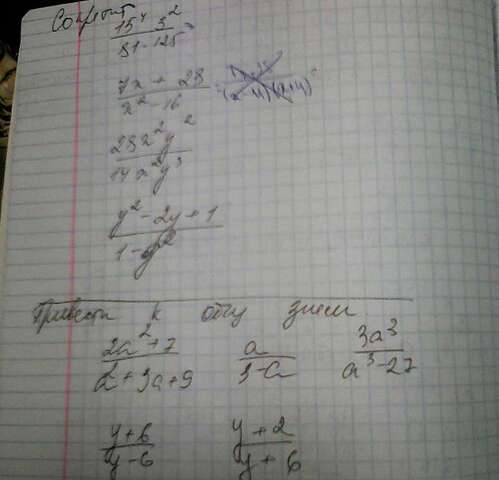 Сократит
15⁴ 3² / 81 - 125
7x + 28 / x² - 16 =
28x²y² / 14x²y³
y² - 2y + 1 / 1 - y²
Привести к общ знам
2a² + 7 / a² + 3a + 9   a / 3 - a   3a³ / a³ - 27
y + 6 / y - 6   y + 2 / y + 6